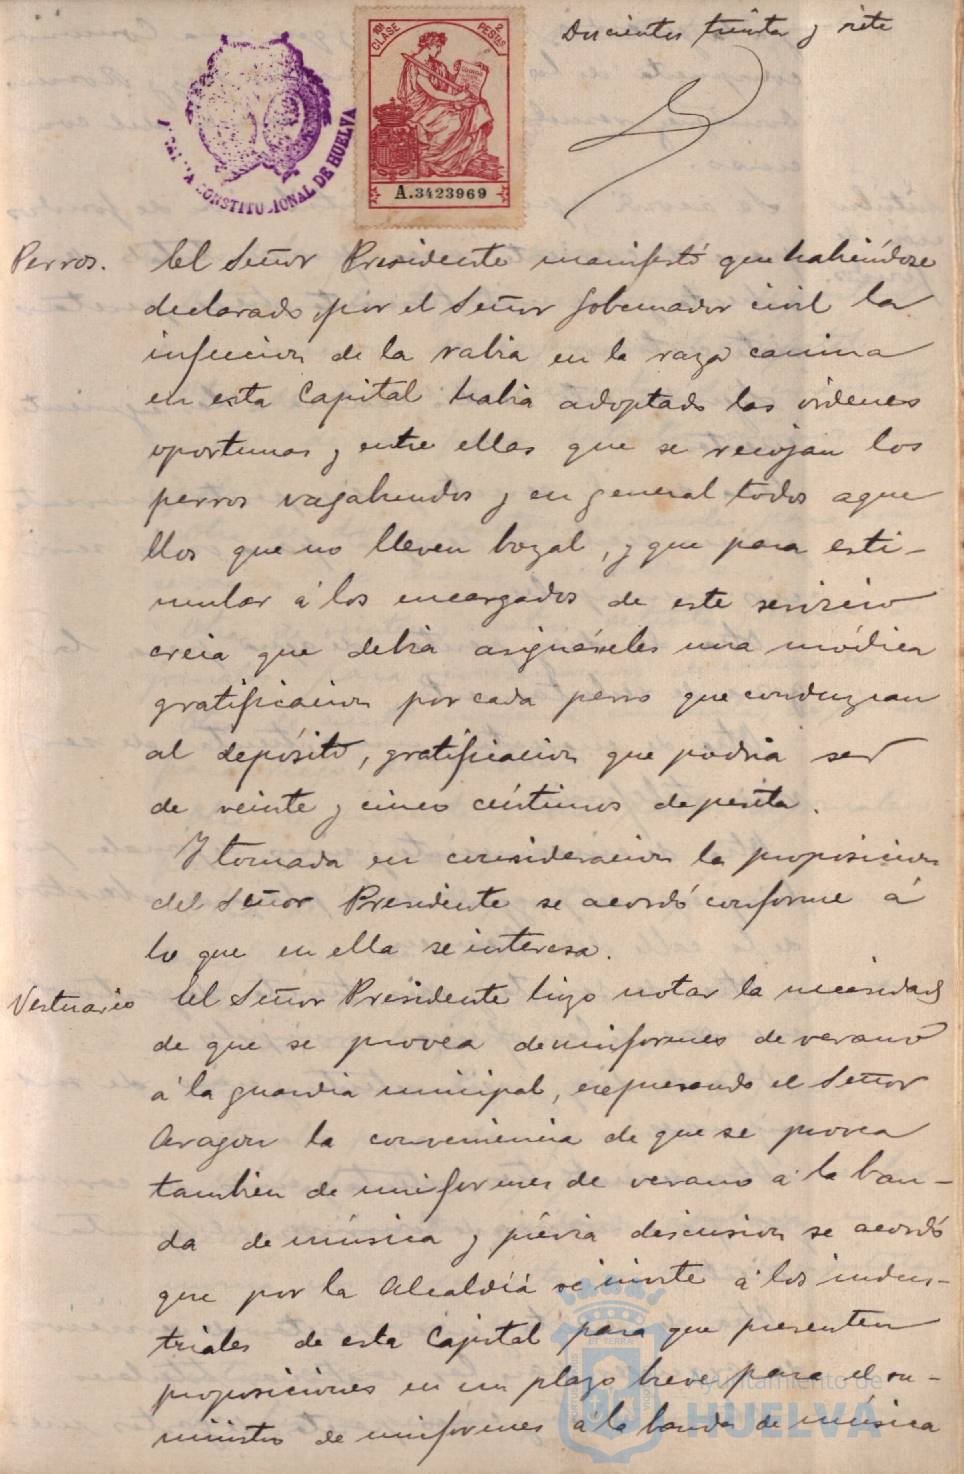 Doscientos treinta y siete
10ª CLASE 2 PESETAS
A.3423969
CONSTITUCIONAL DE HUELVA
Perros. El Señor Presidente manifestó que habiéndose
declarado por el Señor Gobernador civil la
infeccion de la rabia en la raza canina
en esta Capital habia adoptado las órdenes
oportunas y entre ellas que se recojan los
perros vagabundos y en general todos aque
llos que no lleven bozal, y que para esti-
mular á los encargados de este servicio
creia que debia asignárseles una módica
gratificacion por cada perro que conduzcan
al depósito, gratificacion que podria ser
de veinte y cinco céntimos de peseta.
Y tomada en consideracion la proposicion
del Señor Presidente se acordó conforme á
lo que en ella se interesa.
Vestuario El Señor Presidente hizo notar la necesidad
de que se provea de uniformes de verano
á la guardia municipal, expresando el Señor
Aragon la conveniencia de que se provea
tambien de uniformes de verano á la ban-
da de música y prévia discusion se acordó
que por la Alcaldiá se invite á los indus-
triales de esta Capital para que presenten
proposiciones en un plazo breve para el su-
ministro de uniformes á la banda de música
Ayuntamiento de
HUELVA